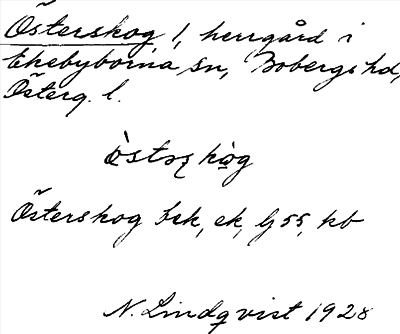 Österskog 1, herrgård i
Ekebyborna sn, Bobergs hd,
Österg. l.
Österskog bsk, ek, lj 55, kb
N. Lindqvist 1928